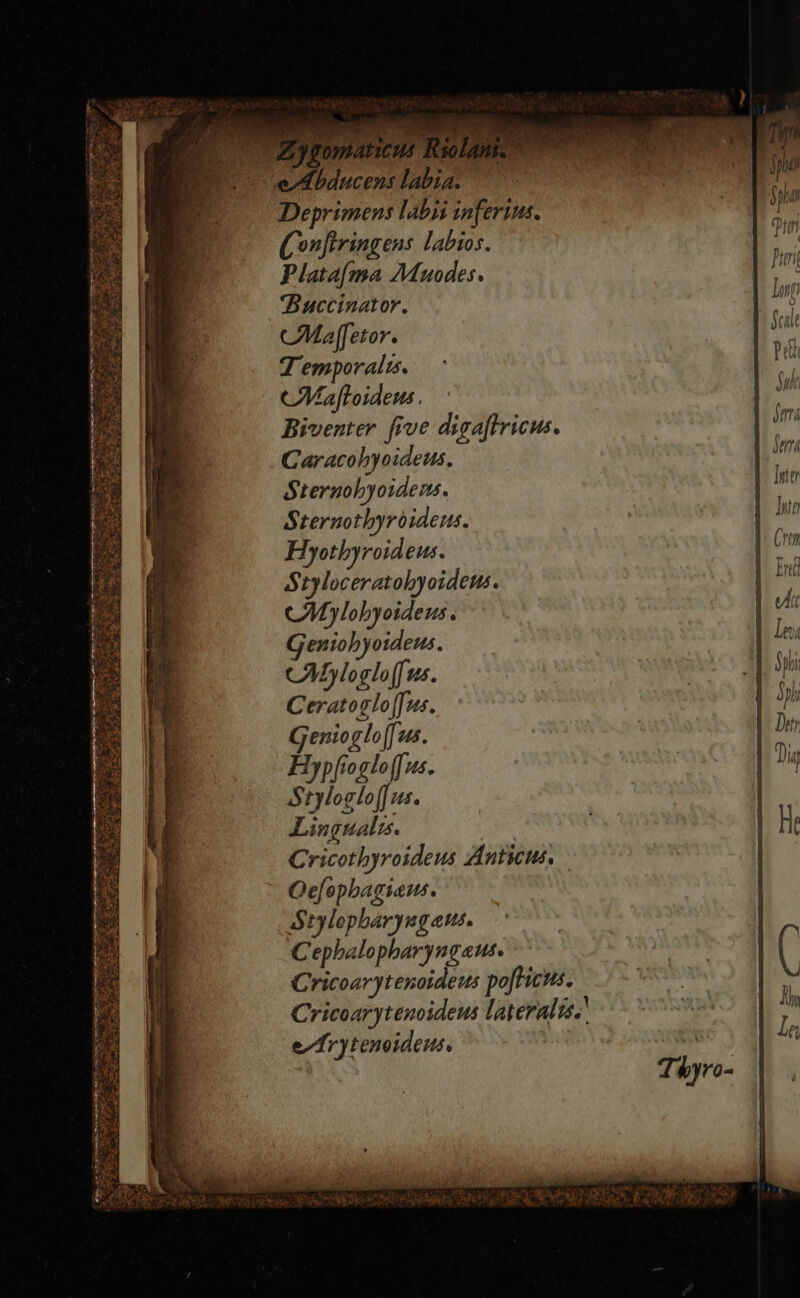 Zygomaticus Riolani.
Abducens labia.
Deprimens labii inferius.
Conſtringens labios.
Plataſma Muodes.
Buccinator.
Maſſetor.
Temporalis.
Maſtoideus.
Biventer ſive digaſtricus.
Caracohyoideus.
Sternohyoideus.
Sternothyròideus.
Hyothyroideus.
Styloceratohyoideus.
Mylohyoideus.
Geniohyoideus.
Mylogloſſus.
Ceratogloſſus.
Geniogloſſus.
Hypſiogloſſus.
Stylogloſſus.
Lingualis.
Cricothyroideus Anticus.
Oeſophagiæus.
Stylopharyngæus.
Cephalopharyngæus.
Cricoarytenoideus poſticus.
Cricoarytenoideus lateralis.
Arytenoideus.
Thyro-